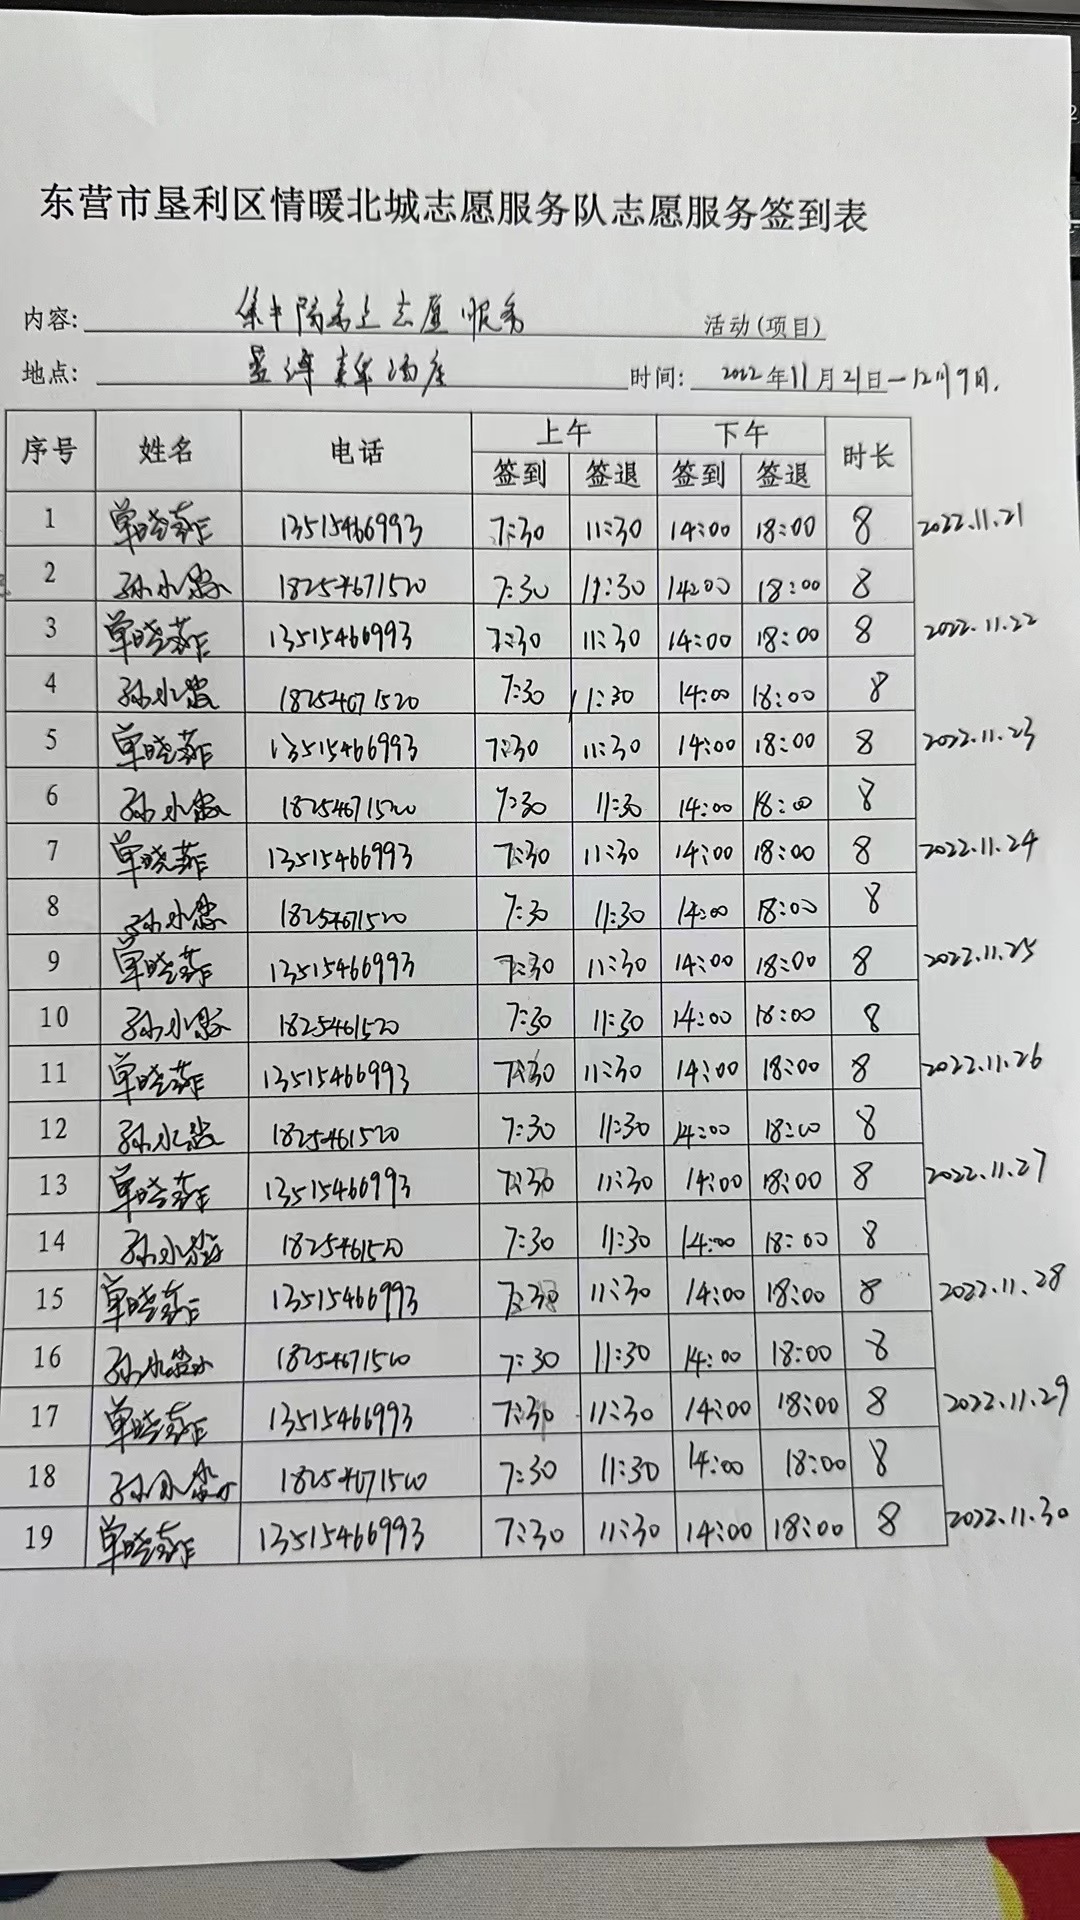 东营市垦利区情暖北城志愿服务队志愿服务签到表
内容: 集中隔离点志愿服务 活动(项目)
地点: 酒店 时间: 2022年11月21日—12月9日.
序号 姓名 电话 上午 下午 时长
签到 签退 签到 签退
1 单晓菲 13515466993 7:30 11:30 14:00 18:00 8 2022.11.21
2 孙小 18254671520 7:30 11:30 14:00 18:00 8
3 单晓菲 13515466993 7:30 11:30 14:00 18:00 8 2022.11.22
4 孙小 18254671520 7:30 11:30 14:00 18:00 8
5 单晓菲 13515466993 7:30 11:30 14:00 18:00 8 2022.11.23
6 孙小 18254671520 7:30 11:30 14:00 18:00 8
7 单晓菲 13515466993 7:30 11:30 14:00 18:00 8 2022.11.24
8 孙小 18254671520 7:30 11:30 14:00 18:00 8
9 单晓菲 13515466993 7:30 11:30 14:00 18:00 8 2022.11.25
10 孙小 1825461520 7:30 11:30 14:00 18:00 8
11 单晓菲 13515466993 7:30 11:30 14:00 18:00 8 2022.11.26
12 孙小 1825461520 7:30 11:30 14:00 18:00 8
13 单晓菲 13515466993 7:30 11:30 14:00 18:00 8 2022.11.27
14 孙小 1825461520 7:30 11:30 14:00 18:00 8
15 单晓菲 13515466993 7:30 11:30 14:00 18:00 8 2022.11.28
16 孙小 18254671520 7:30 11:30 14:00 18:00 8
17 单晓菲 13515466993 7:30 11:30 14:00 18:00 8 2022.11.29
18 孙小 18254671520 7:30 11:30 14:00 18:00 8
19 单晓菲 13515466993 7:30 11:30 14:00 18:00 8 2022.11.30